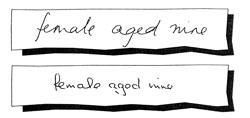 female aged nine
female aged nine